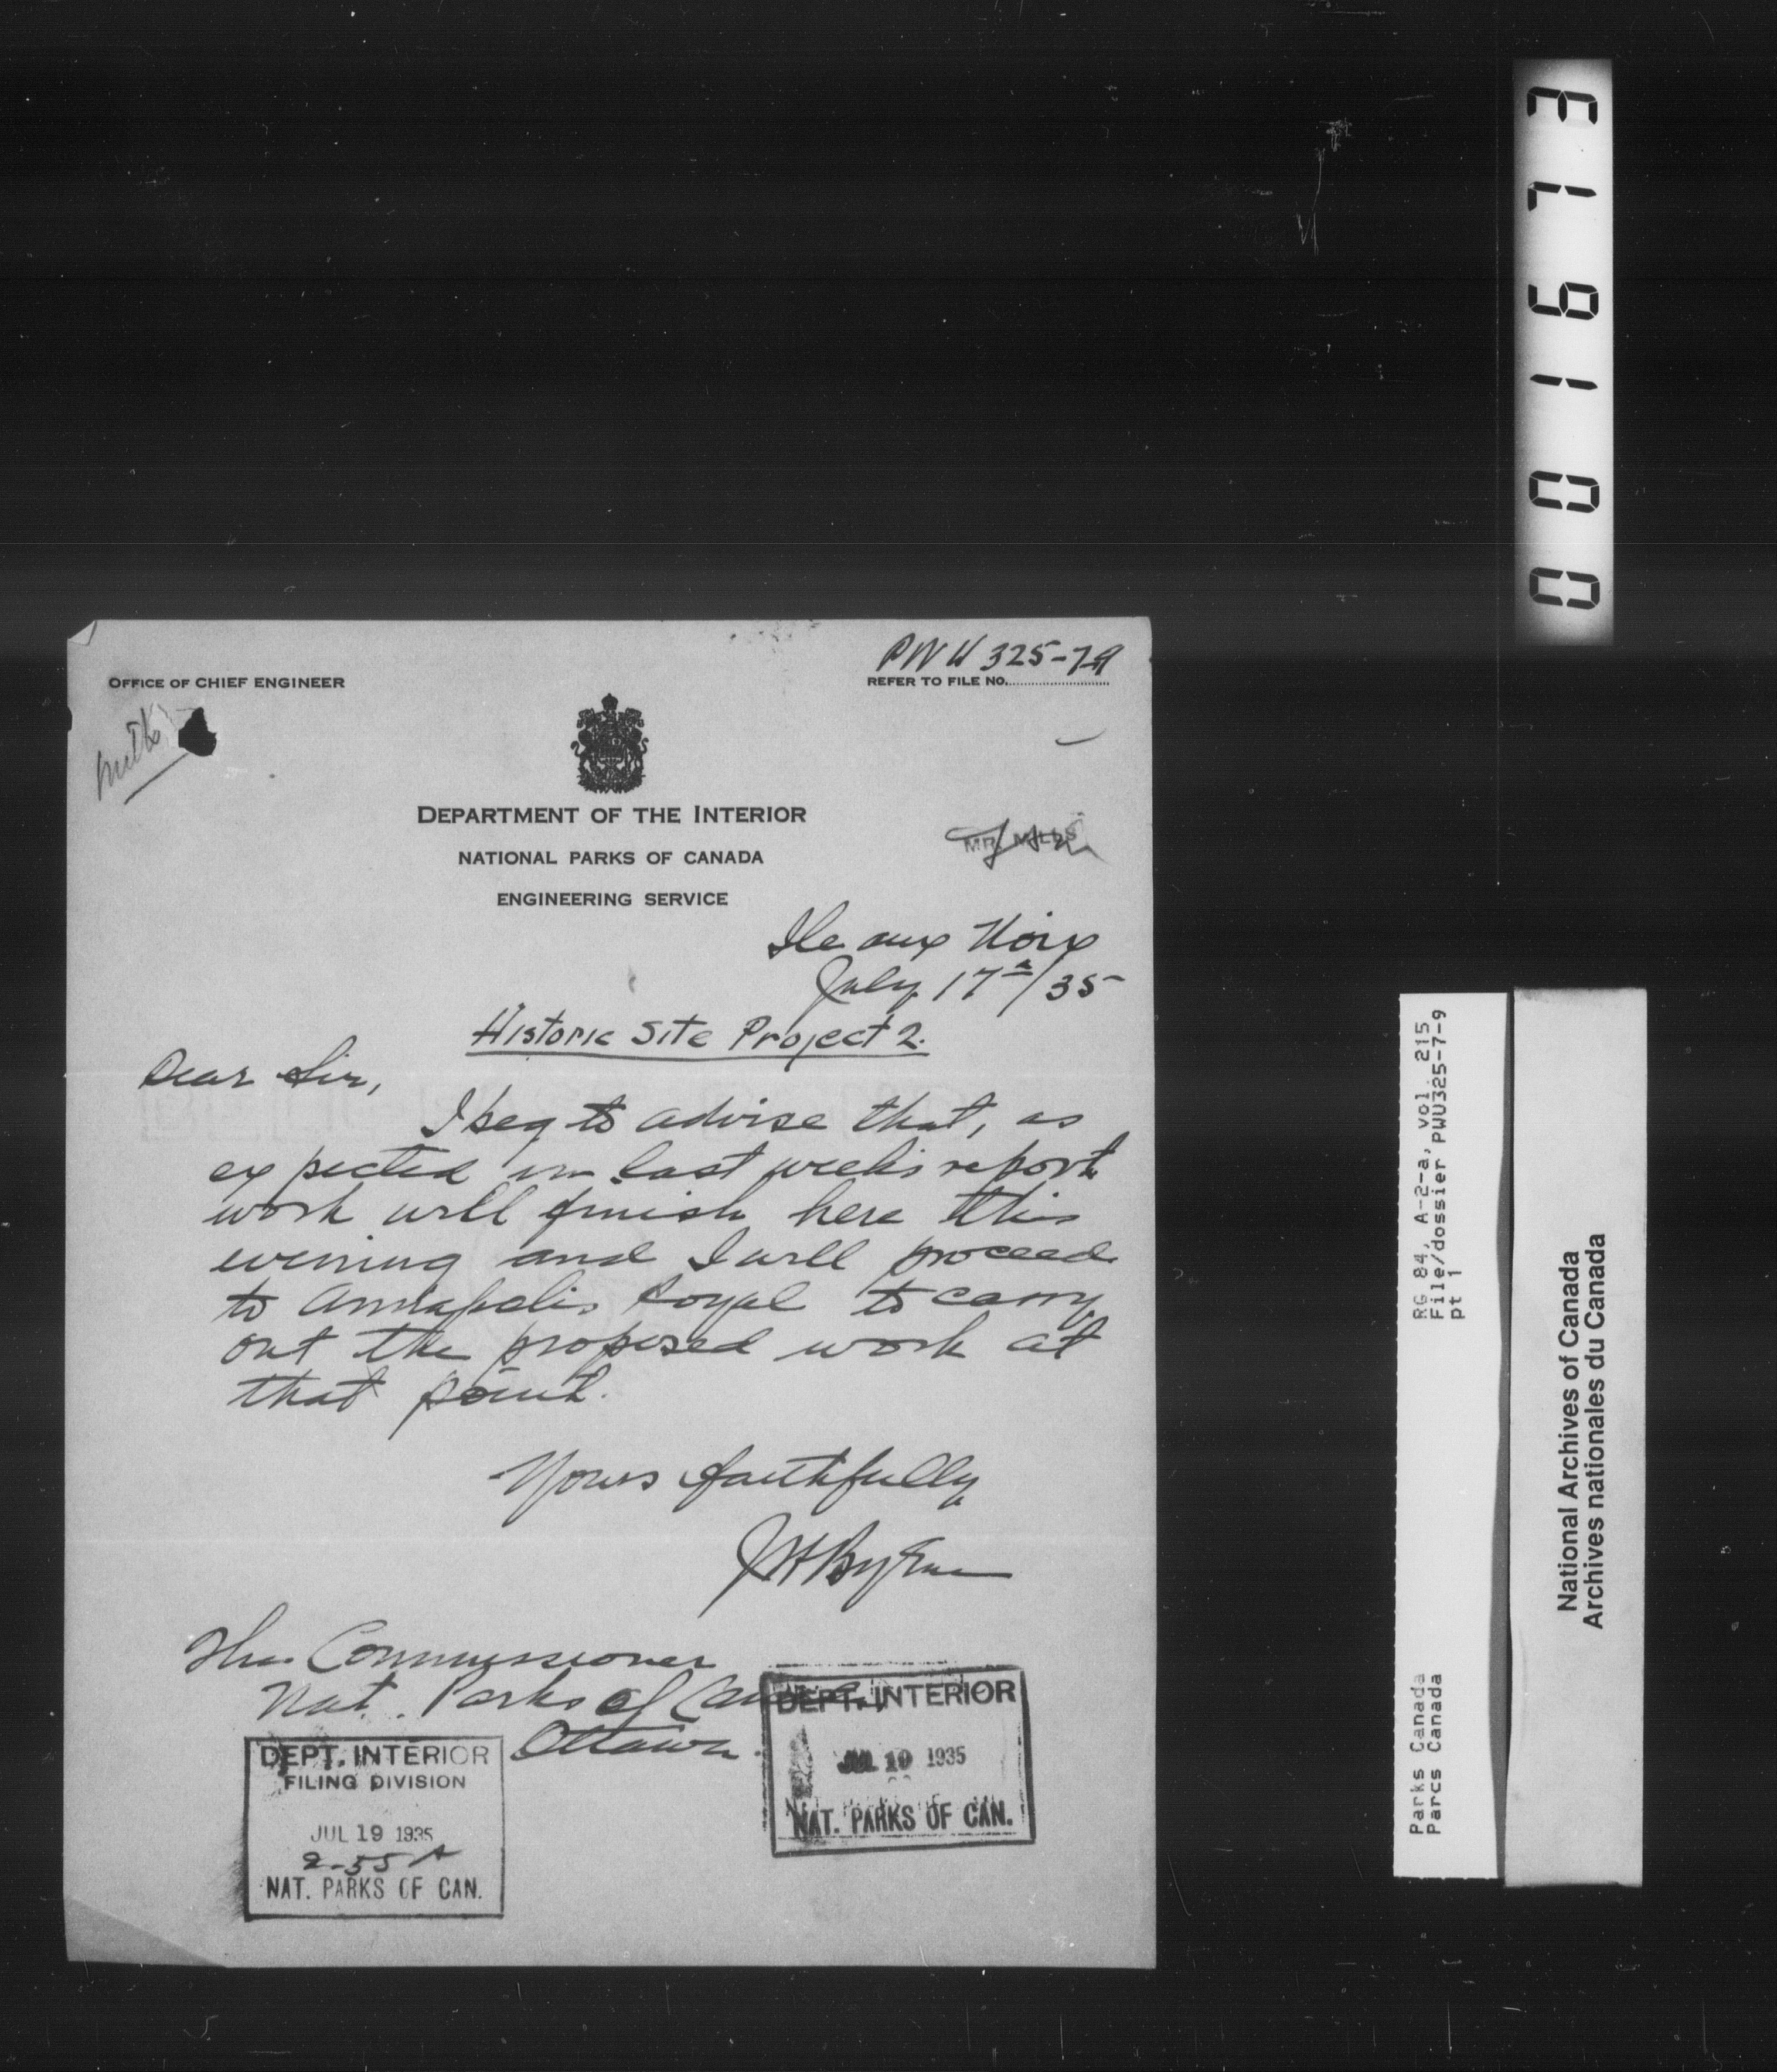 001673
PWU 325-7-9
OFFICE OF CHIEF ENGINEER
REFER TO FILE NO.
DEPARTMENT OF THE INTERIOR
NATIONAL PARKS OF CANADA
ENGINEERING SERVICE
MR. MILLS
Ile aux Noix
July 17th/35
Historic Site Project 2.
Dear Sir,
I beg to advise that, as
expected in last weeks report
work will finish here this
evening and I will proceed
to Annapolis Royal to carry
out the proposed work at
that point.
Yours faithfully,
The Commissioner
Nat. Parks of Canada,
Ottawa.
DEPT. INTERIOR
FILING DIVISION
JUL 19 1935
2-55
NAT. PARKS OF CAN.
DEPT. INTERIOR
JUL 19 1935
NAT. PARKS OF CAN.
RG 84, A-2-a, vol. 215,
File/dossier PWU325-7-9
pt 1
Parks Canada
Parcs Canada
National Archives of Canada
Archives nationales du Canada